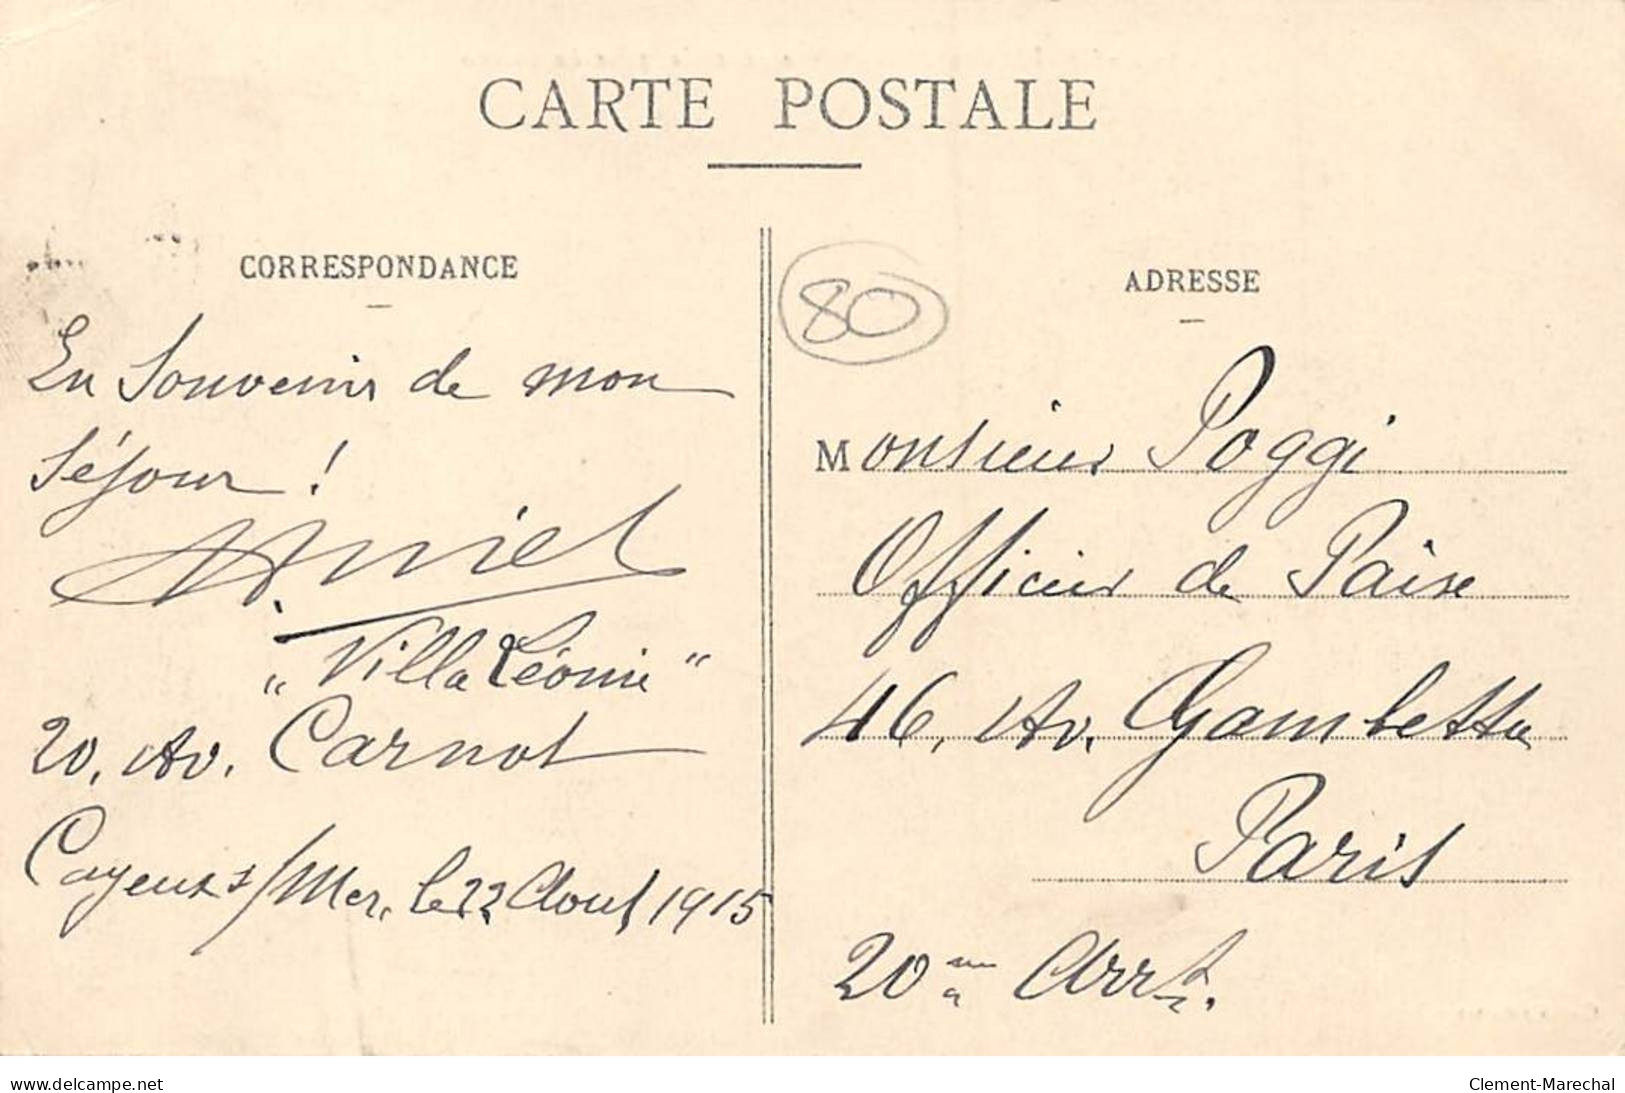 CARTE POSTALE
CORRESPONDANCE
En Souvenir de mon
séjour !
"Villa Léonie"
20, Av. Carnot
Cayeux s/Mer, le 22 Aout 1915
80
ADRESSE
Monsieur Poggi
Officier de Paix
46, Av. Gambetta
Paris
20me Arrt.
www.delcampe.net
Clement-Marechal